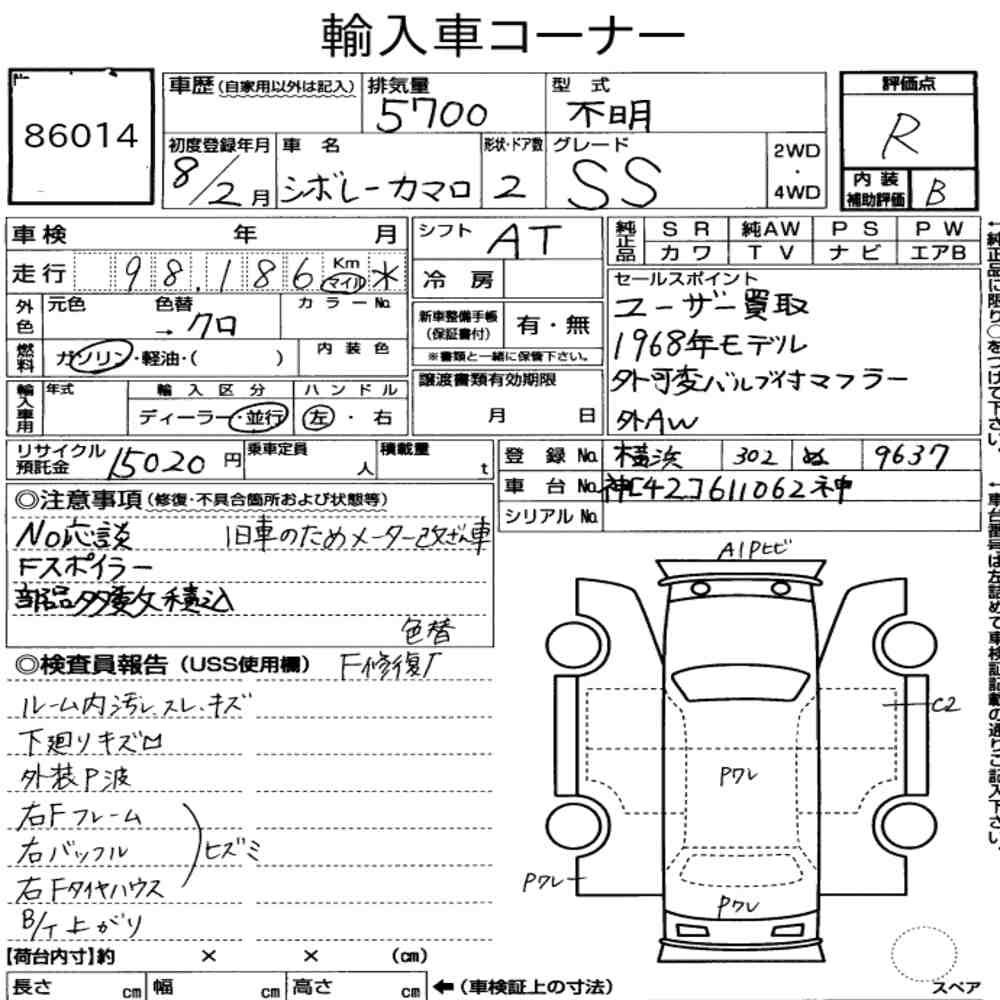 輸入車コーナー
86014
車歴(自家用以外は記入) 排気量 5700 型式 不明
評価点 R
初度登録年月 8/2月 車名 シボレーカマロ 形状・ドア数 2 グレード SS 2WD・4WD
内装補助評価 B
車検 年 月
走行 98,186 Km マイル 氺
外色 元色 色替 → クロ カラーNo.
燃料 ガソリン・軽油・( ) 内装色
輸入車用 年式 輸入区分 ディーラー・並行 ハンドル 左・右
シフト AT
冷房
新車整備手帳(保証書付) 有・無
※書類と一緒に保管下さい。
譲渡書類有効期限
月 日
純正品 SR 純AW PS PW
カワ TV ナビ エアB
セールスポイント
ユーザー買取
1968年モデル
外可変バルブ付マフラー
外AW
←純正品に限り○をつけて下さい。
リサイクル預託金 15020円 乗車定員 人 積載量 t
登録No. 横浜 302 ぬ 9637
車台No. 神[42]611062神
シリアルNo.
←車台番号は左詰めで車検証記載の通りご記入下さい。
◎注意事項(修復・不具合箇所および状態等)
No応談 旧車のためメーター改ざん車
Fスポイラー
部品多数欠積込
色替
◎検査員報告(USS使用欄) F修復歴
ルーム内汚レ、スレ、キズ
下廻りキズ凹
外装P波
右Fフレーム
右バッフル ヒズミ
右Fタイヤハウス
B/T上がり
A1Pヒビ
C2
Pワレ
Pワレ
Pワレ
スペア
【荷台内寸】約 × × (cm)
長さ cm 幅 cm 高さ cm ←(車検証上の寸法)